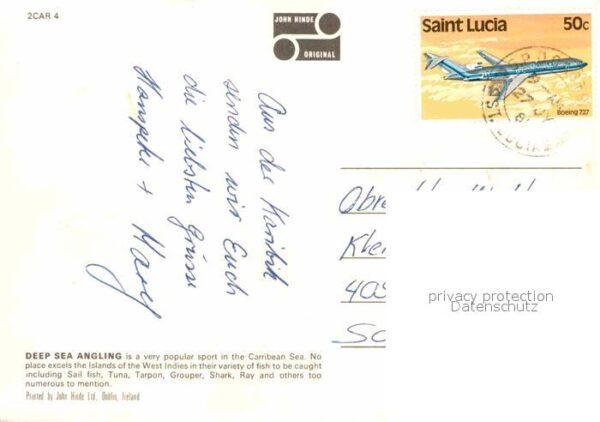 2CAR 4
JOHN HINDE
ORIGINAL
Saint Lucia 50c
Boeing 727
Aus der Karibik
senden wir Euch
die liebsten Grüsse
+
privacy protection
Datenschutz
DEEP SEA ANGLING is a very popular sport in the Carribean Sea. No
place excels the Islands of the West Indies in their variety of fish to be caught
including Sail fish, Tuna, Tarpon, Grouper, Shark, Ray and others too
numerous to mention.
Printed by John Hinde Ltd., Dublin, Ireland